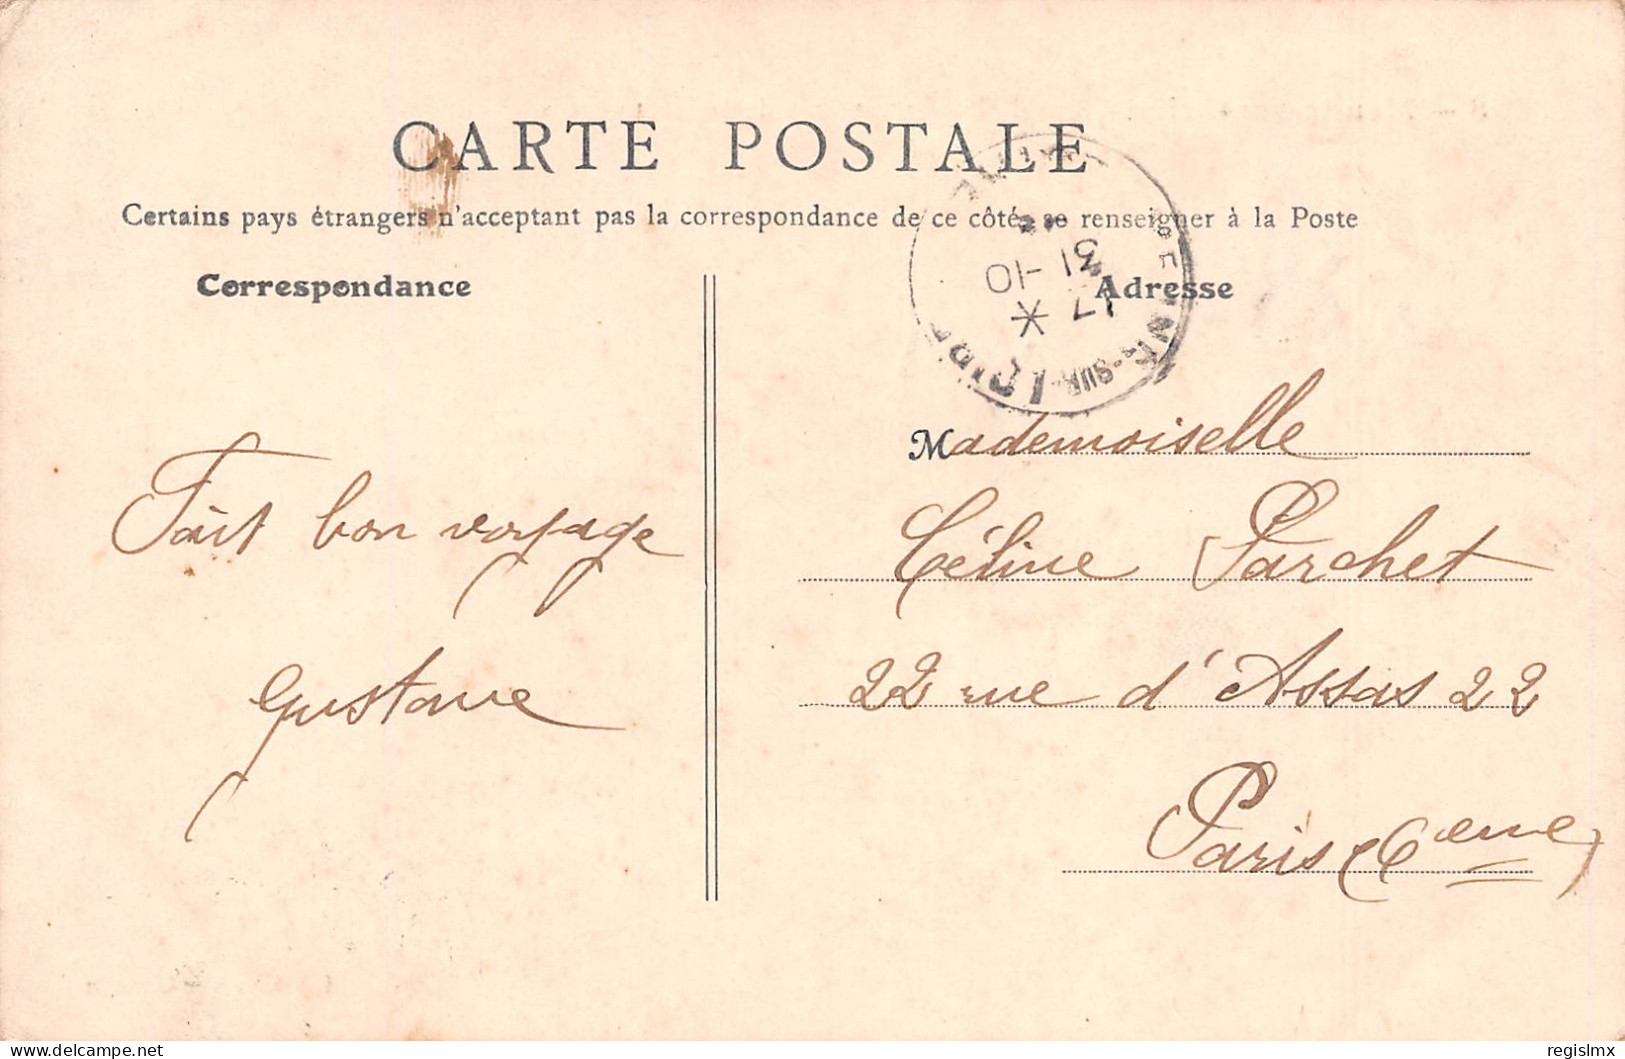 CARTE POSTALE
Certains pays étrangers n'acceptant pas la correspondance de ce côté, se renseigner à la Poste
Correspondance
Adresse
17 * 31 -10
-SUR-LOIRE
Mademoiselle
Fait bon voyage
Céline Parchet
Gustave
22 rue d'Assas 22
Paris (6eme)
delcampe.net
regislmx